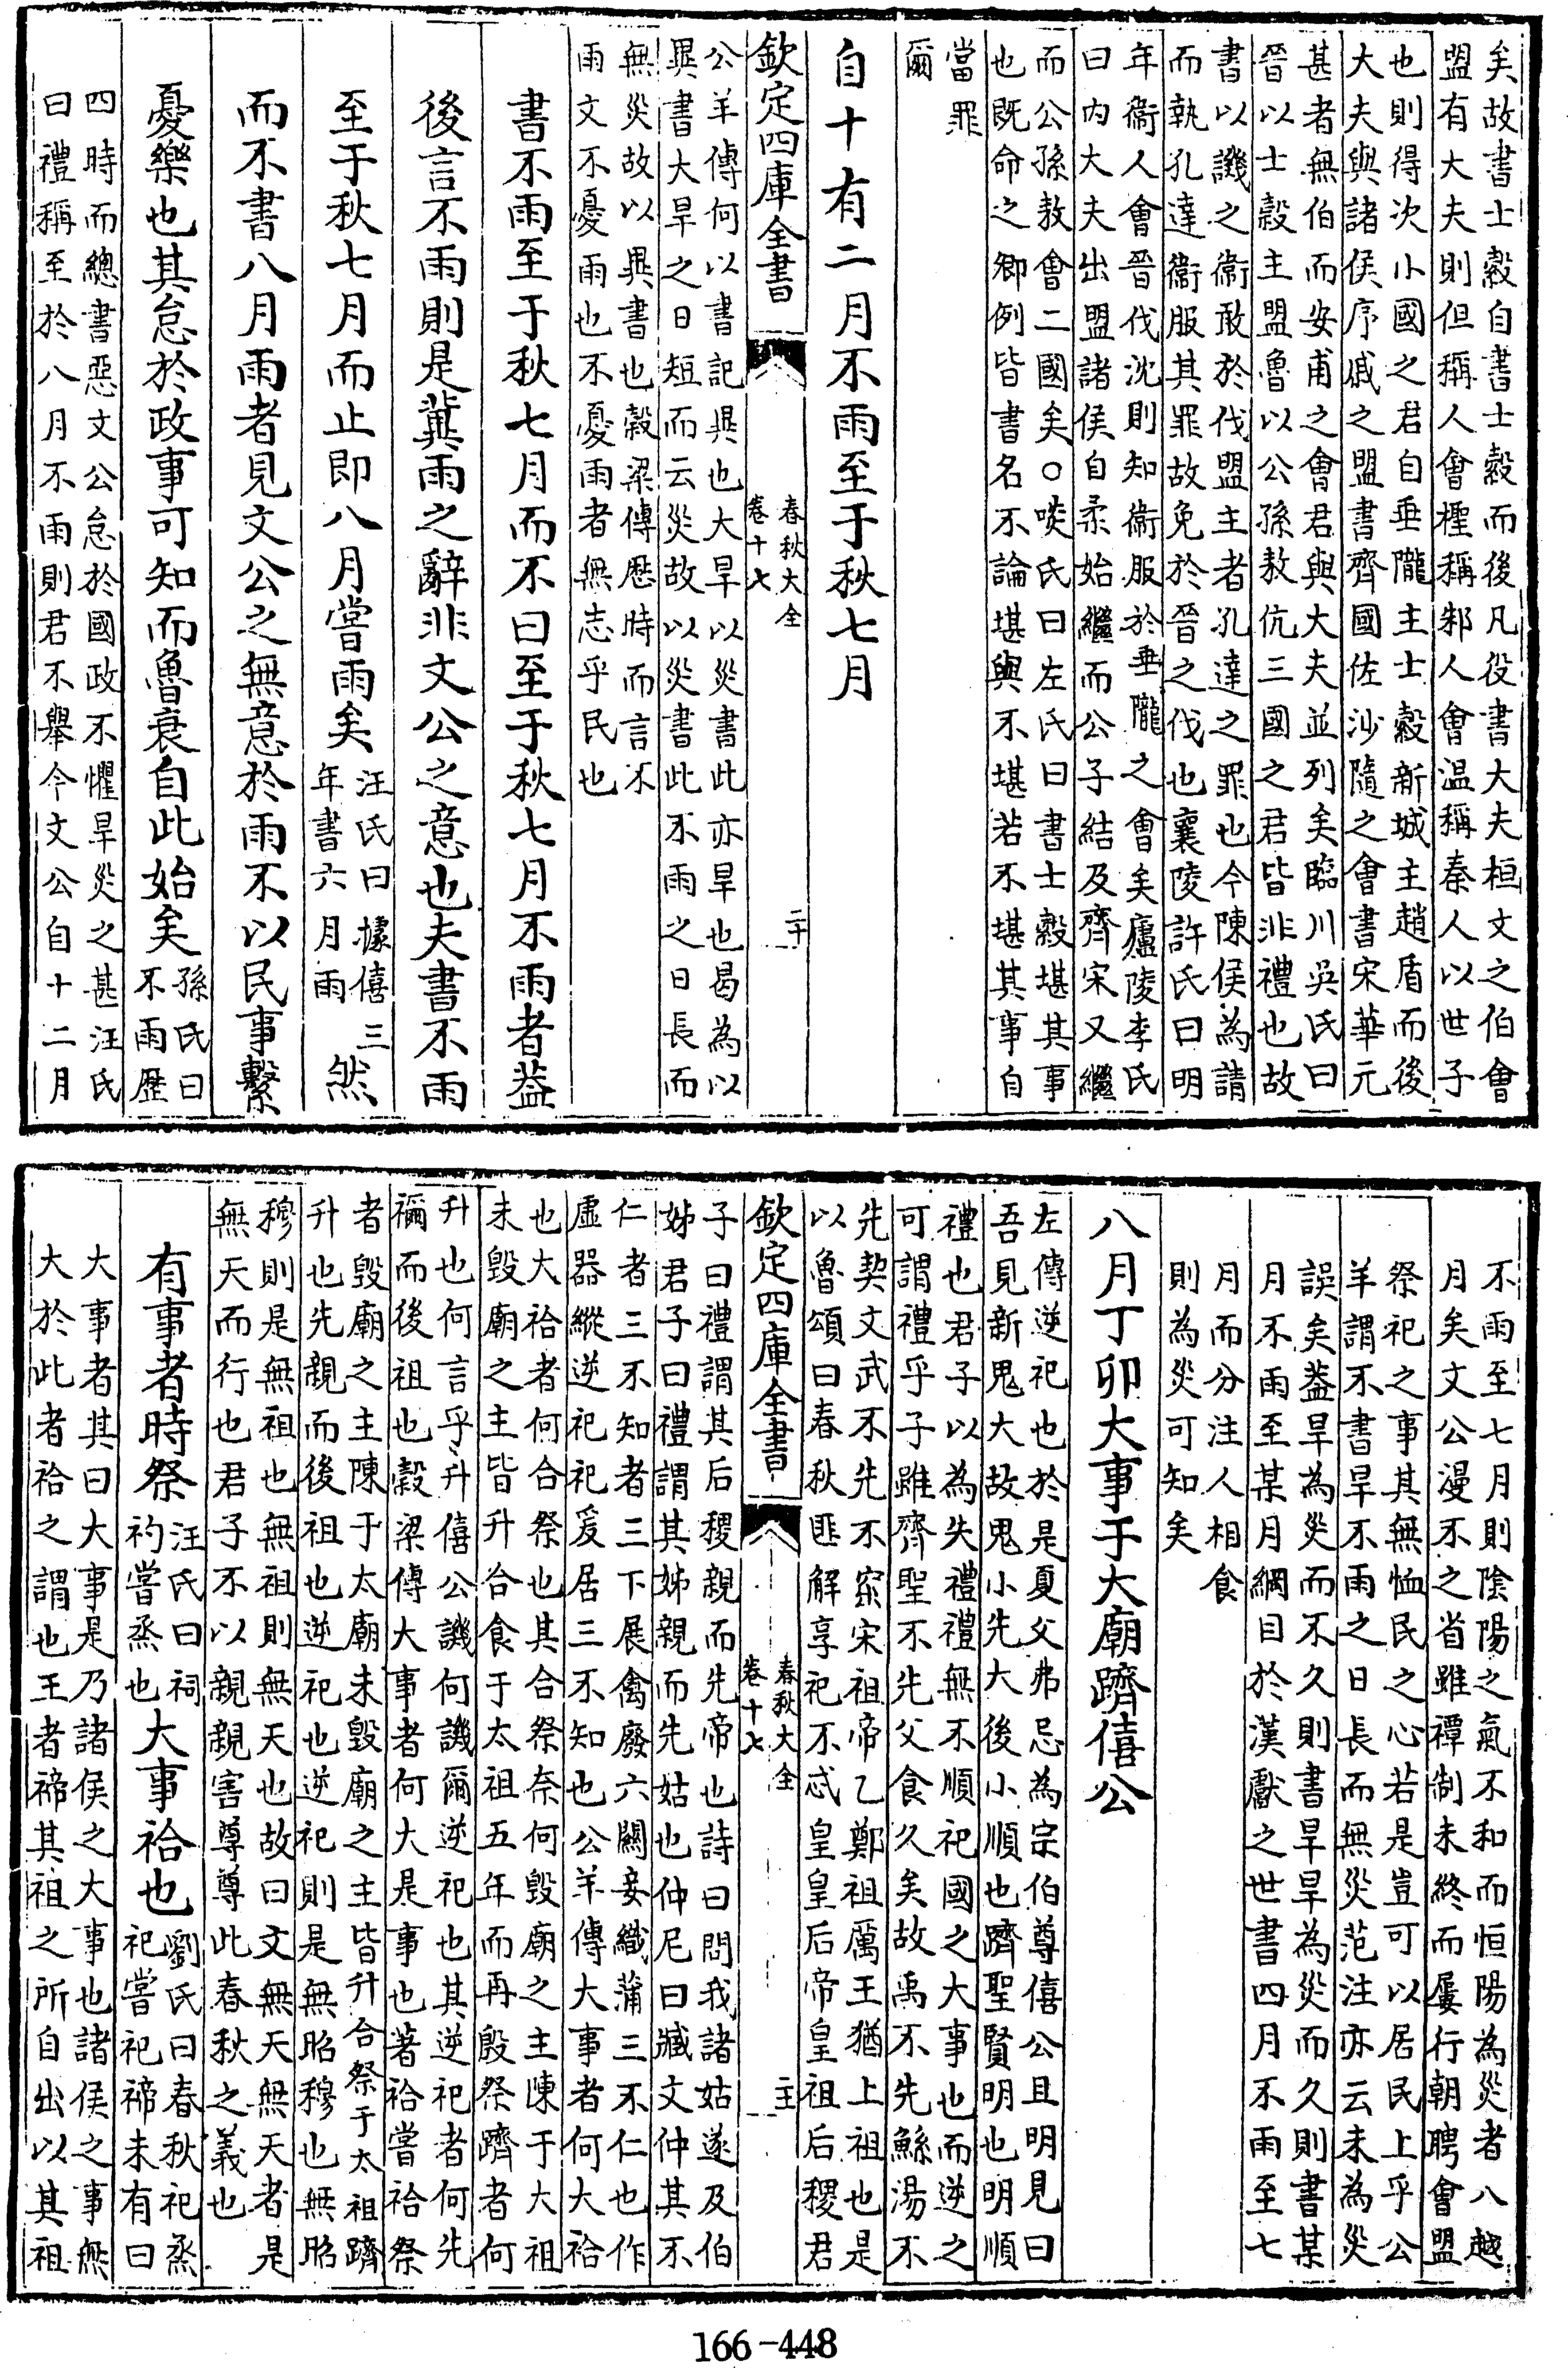 矣故書士縠自書士縠而後凡役書大夫桓文之伯會
盟有大夫則但稱人會檉稱邾人會温稱秦人以世子
也則得次小國之君自垂隴主士縠新城主趙盾而後
大夫與諸侯序戚之盟書齊國佐沙隨之會書宋華元
甚者無伯而安甫之會君與大夫並列矣臨川吳氏曰
晉以士縠主盟魯以公孫敖伉三國之君皆非禮也故
書以譏之衞敢於伐盟主者孔達之罪也今陳侯為請
而執孔達衞服其罪故免於晉之伐也襄陵許氏曰明
年衞人會晉伐沈則知衞服於垂隴之會矣廬陵李氏
曰内大夫出盟諸侯自柔始繼而公子結及齊宋又繼
而公孫敖會二國矣○啖氏曰左氏曰書士縠堪其事
也既命之卿例皆書名不論堪與不堪若不堪其事自
當罪
爾
自十有二月不雨至于秋七月
欽定四庫全書
春秋大全
卷十七
二十
公羊傳何以書記異也大旱以災書此亦旱也曷為以
異書大旱之日短而云災故以災書此不雨之日長而
無災故以異書也穀梁傳歴時而言不
雨文不憂雨也不憂雨者無志乎民也
書不雨至于秋七月而不曰至于秋七月不雨者葢
後言不雨則是冀雨之辭非文公之意也夫書不雨
至于秋七月而止即八月嘗雨矣
汪氏曰據僖三
年書六月雨
然
而不書八月雨者見文公之無意於雨不以民事繫
憂樂也其怠於政事可知而魯衰自此始矣
孫氏曰
不雨歴
四時而總書惡文公怠於國政不懼旱災之甚汪氏
曰禮稱至於八月不雨則君不舉今文公自十二月
不雨至七月則陰陽之氣不和而恒陽為災者八越
月矣文公漫不之省雖禫制未終而屢行朝聘會盟
祭祀之事其無恤民之心若是豈可以居民上乎公
羊謂不書旱不雨之日長而無災范注亦云未為災
誤矣葢旱為災而不久則書旱旱為災而久則書某
月不雨至某月綱目於漢獻之世書四月不雨至七
月而分注人相食
則為災可知矣
八月丁卯大事于大廟躋僖公
左傳逆祀也於是夏父弗忌為宗伯尊僖公且明見曰
吾見新鬼大故鬼小先大後小順也躋聖賢明也明順
禮也君子以為失禮禮無不順祀國之大事也而逆之
可謂禮乎子雖齊聖不先父食久矣故禹不先鯀湯不
先契文武不先不窋宋祖帝乙鄭祖厲王猶上祖也是
以魯頌曰春秋匪解享祀不忒皇皇后帝皇祖后稷君
欽定四庫全書
春秋大全
卷十七
二十一
子曰禮謂其后稷親而先帝也詩曰問我諸姑遂及伯
姊君子曰禮謂其姊親而先姑也仲尼曰臧文仲其不
仁者三不知者三下展禽廢六關妾織蒲三不仁也作
虛器縱逆祀祀爰居三不知也公羊傳大事者何大祫
也大祫者何合祭也其合祭奈何毁廟之主陳于大祖
未毁廟之主皆升合食于太祖五年而再殷祭躋者何
升也何言乎升僖公譏何譏爾逆祀也其逆祀者何先
禰而後祖也穀梁傳大事者何大是事也著祫嘗祫祭
者毁廟之主陳于太廟未毁廟之主皆升合祭于太祖躋
升也先親而後祖也逆祀也逆祀則是無昭穆也無昭
穆則是無祖也無祖則無天也故曰文無天無天者是
無天而行也君子不以親親害尊尊此春秋之義也
有事者時祭
汪氏曰祠
礿嘗烝也
大事祫也
劉氏曰春秋祀烝
祀嘗祀禘未有曰
大事者其曰大事是乃諸侯之大事也諸侯之事無
大於此者祫之謂也王者禘其祖之所自出以其祖
166-448